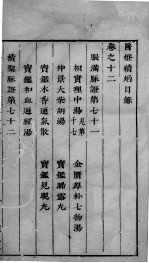 醫壘續焰目錄
卷之十二
脹滿脈證第七十一
枳實理中湯
金匱厚朴七物湯
仲景大柴胡湯
寶鑑木香通氣散
寶鑑和血通經湯
寶鑑見睍丸
積聚脈證第七十二